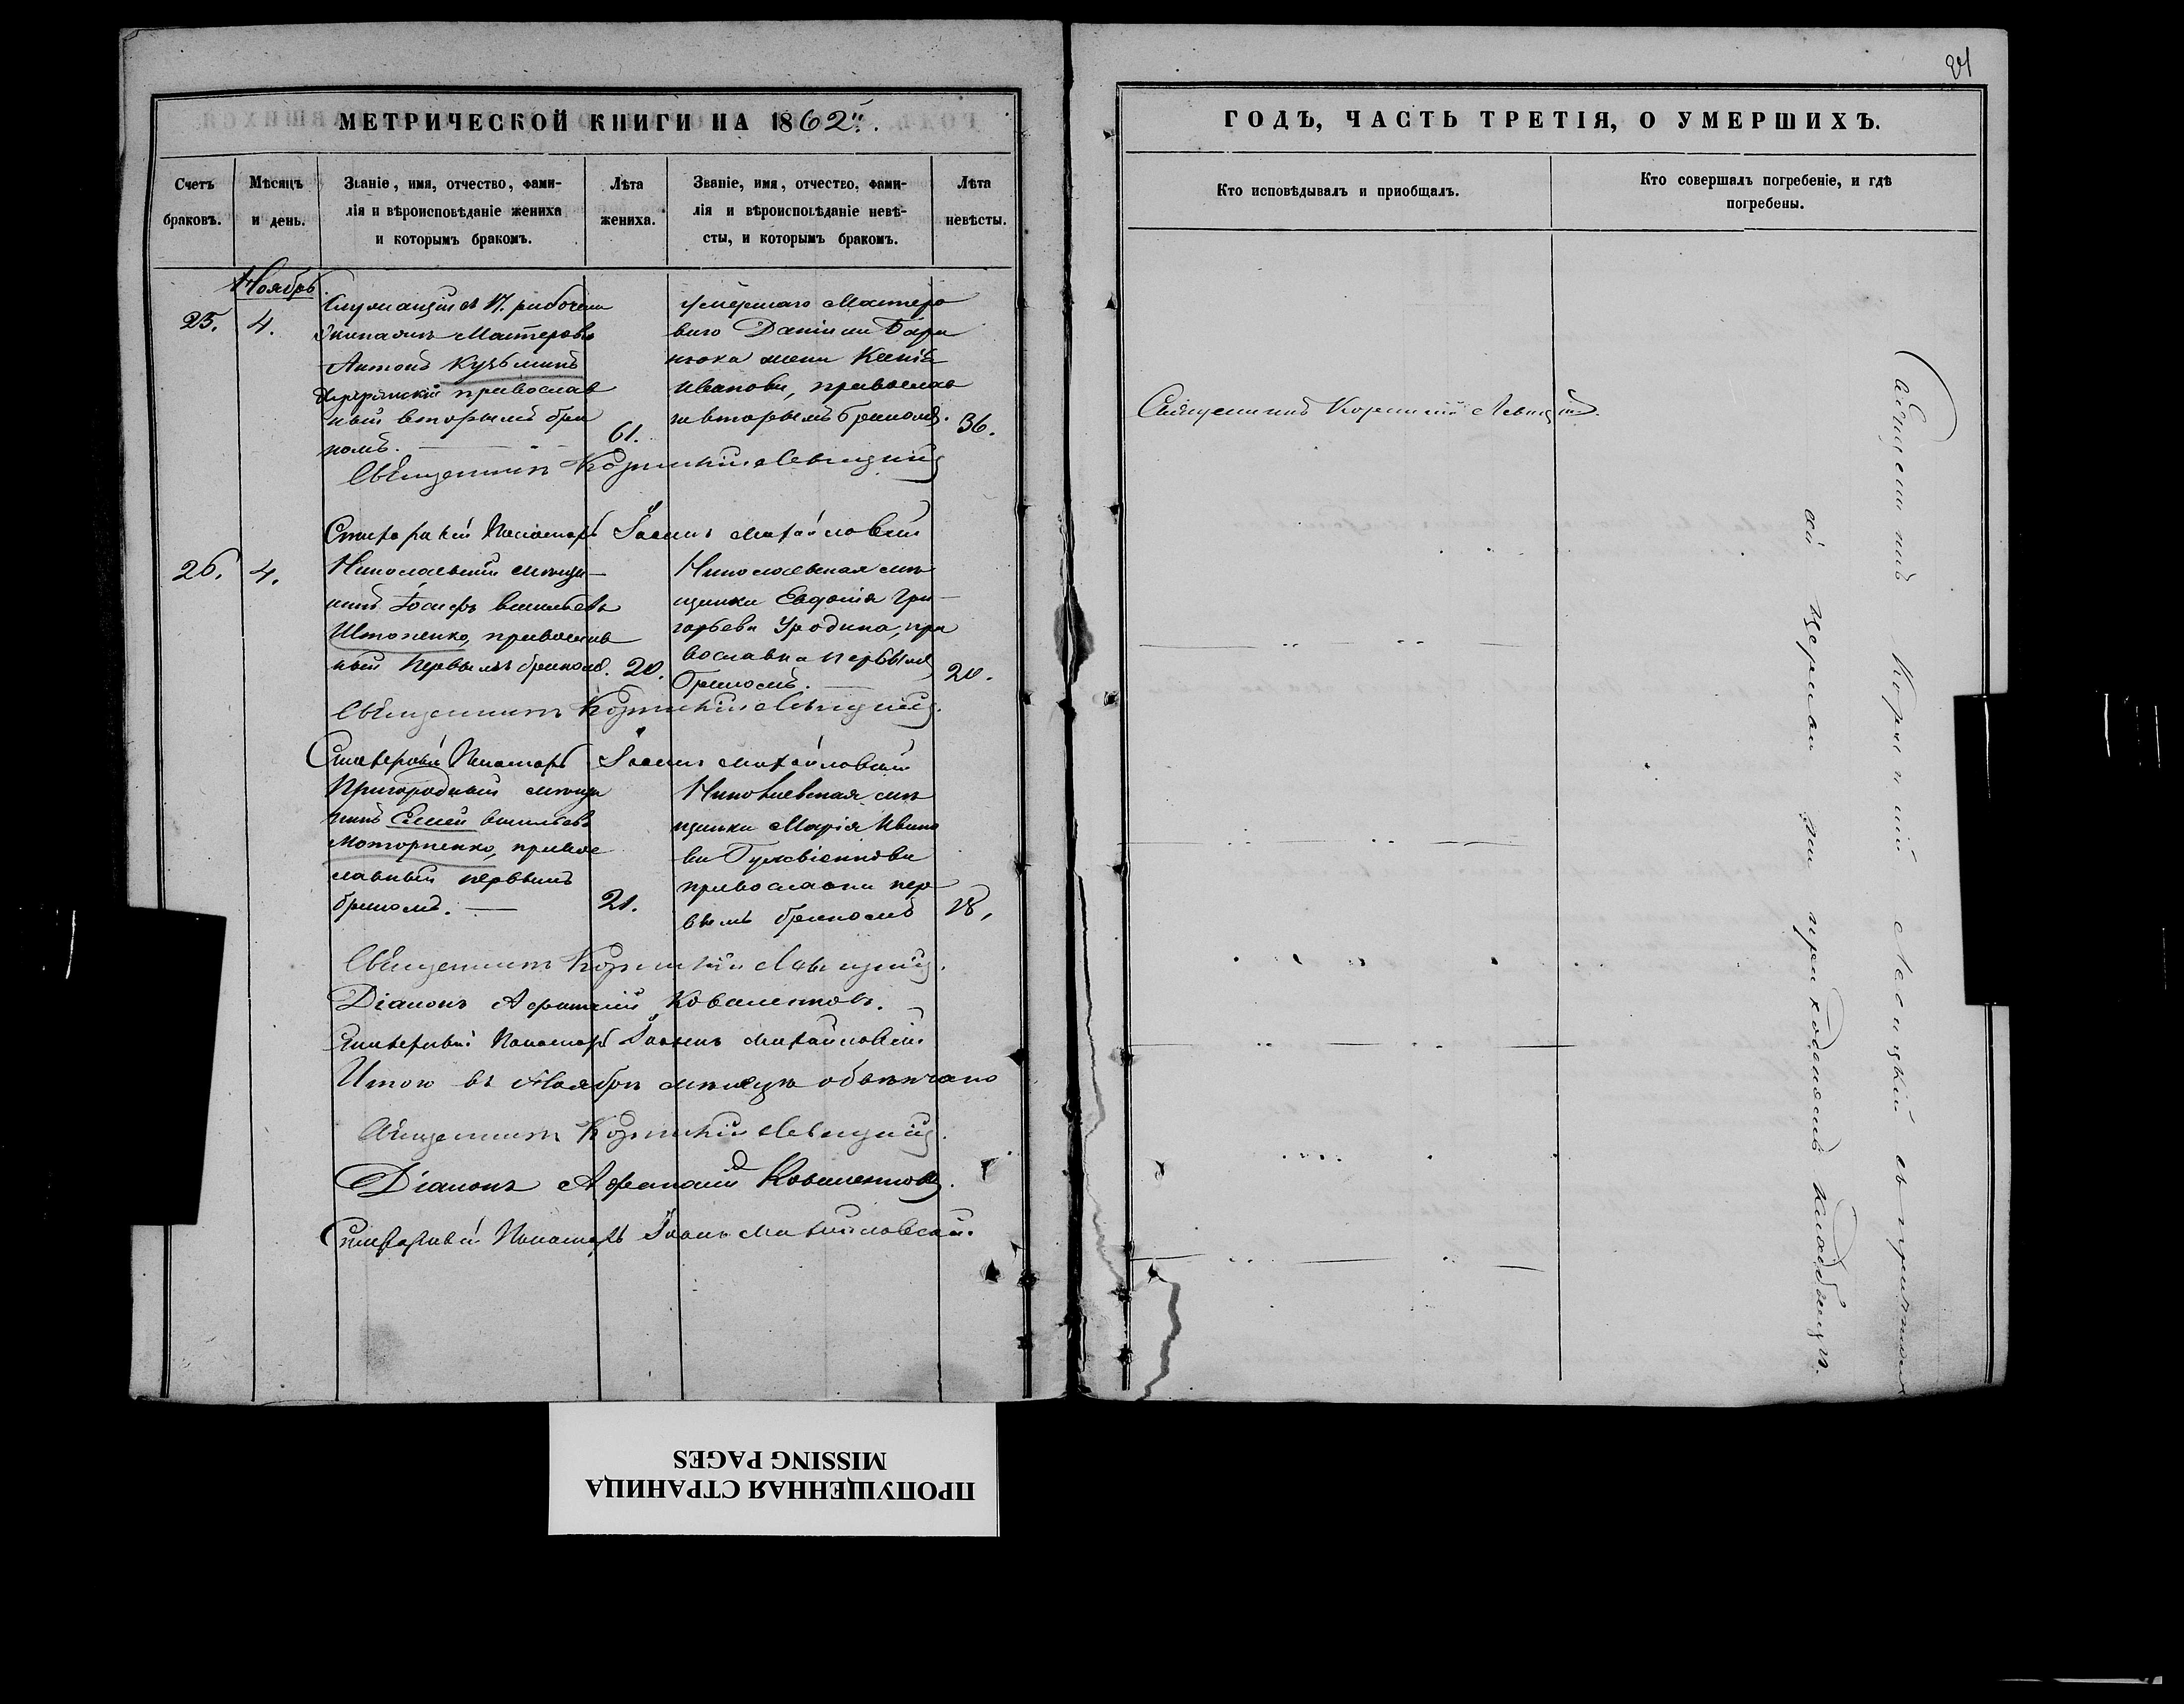 МЕТРИЧЕСКОЙ КНИГИ НА 1862й.
Счетъ браковъ.
Мѣсяцъ и день.
Званіе, имя, отчество, фами-
лія и вѣроисповѣданіе жениха
и которымъ бракомъ.
Лѣта жениха.
Званіе, имя, отчество, фами-
лія и вѣроисповѣданіе невѣ-
сты, и которымъ бракомъ.
Лѣта невѣсты.
Ноябрь
25.
4.
Служащій въ 17. рабочемъ
Экипажѣ Мастеровой
Антонъ Кузьминъ
православ
ный вторымъ бра
комъ.
61.
умершаго Мастеро
ваго Даніила
жена
Иванова, православ
вторымъ бракомъ.
36.
Священникъ Корнилій Левицкій
Пономарь Іоаннъ Михайловскій
26.
4.
Николаевскій мѣща-
нинъ Іосифъ Васильевъ
Штопенко, православ
ный первымъ бракомъ.
20.
Николаевская мѣ
щанка Евдокія Гри-
горьева Уродина, пра
вославна первымъ
бракомъ.
20.
Священникъ Корнилій Левицкій.
Пономарь Іоаннъ Михайловскій
Пригородный мѣща
нинъ Семенъ Васильевъ
Моторненко, право
славный первымъ
бракомъ.
21.
Николаевская мѣ
щанка Марія Ивано
ва
православна пер
вымъ бракомъ
18.
Священникъ Корнилій Левицкій.
Діаконъ Афанасій Ковалентовъ.
Пономарь Іоаннъ Михайловскій
Итого въ Ноябрѣ мѣсяцѣ обвѣнчано
Священникъ Корнилій Левицкій.
Діаконъ Афанасій Ковалентовъ.
Пономарь Іоаннъ Михайловскій.
21
ГОДЪ, ЧАСТЬ ТРЕТІЯ, О УМЕРШИХЪ.
Кто исповѣдывалъ и пріобщалъ.
Кто совершалъ погребеніе, и гдѣ
погребены.
Священникъ Корнилій Левицкій.
Священникъ Корнилій Левицкій съ причтомъ
церкви на приходскомъ кладбищѣ.
ПРОПУЩЕННАЯ СТРАНИЦА
MISSING PAGES